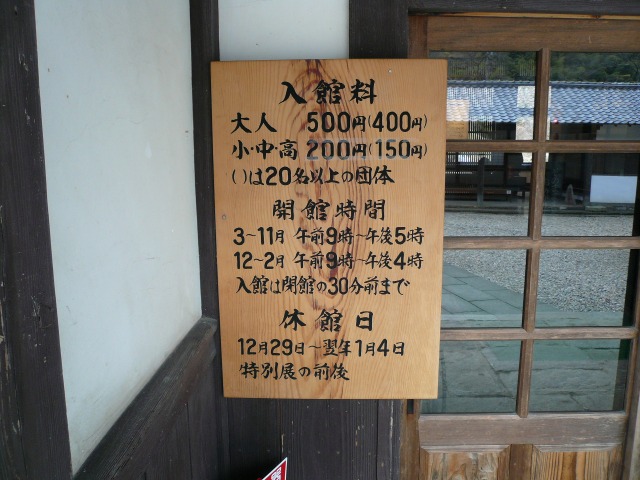 入館料
大人 500円(400円)
小・中・高 200円(150円)
( )は20名以上の団体
開館時間
3~11月 午前9時~午後5時
12~2月 午前9時~午後4時
入館は閉館の30分前まで
休館日
12月29日~翌年1月4日
特別展の前後